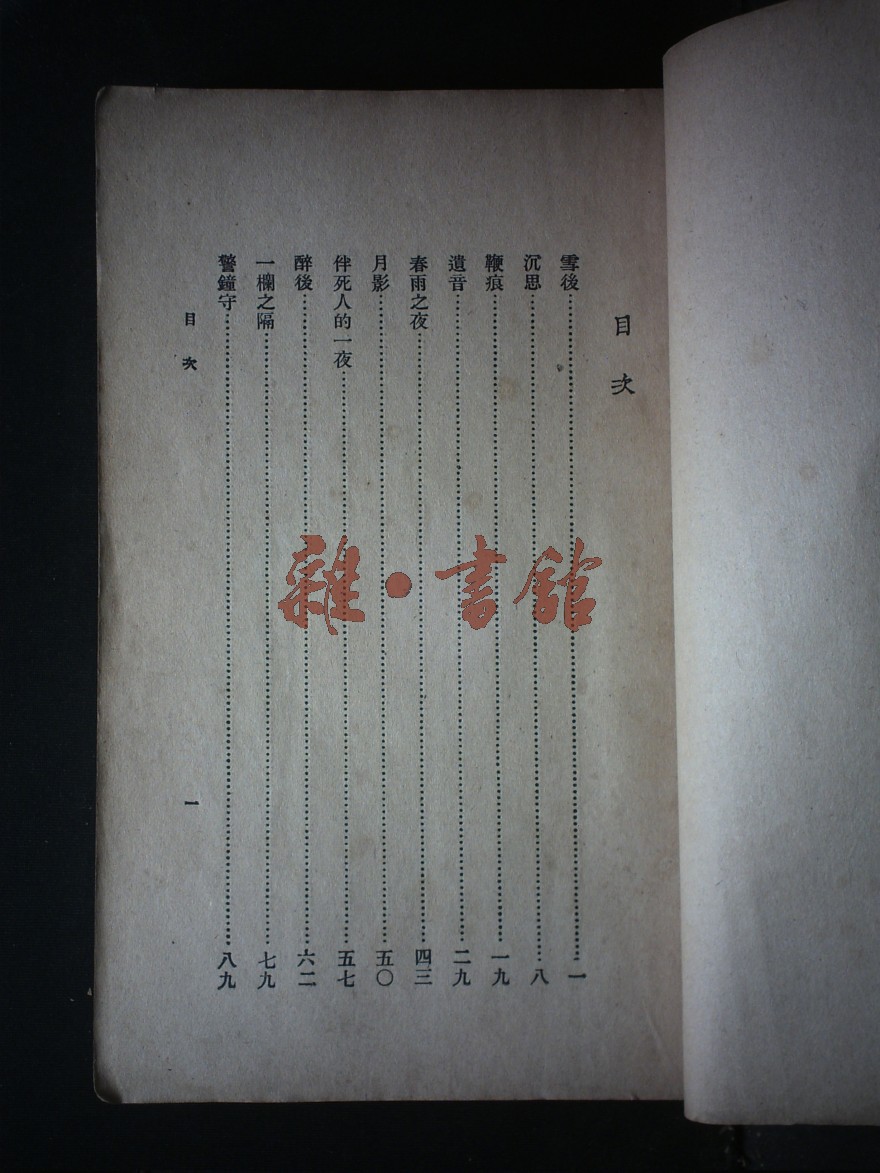 目次
雪後……一
沉思……八
鞭痕……一九
遺音……二九
春雨之夜……四三
月影……五〇
伴死人的一夜……五七
醉後……六二
一欄之隔……七九
警鐘守……八九
目次
一
雜·書館